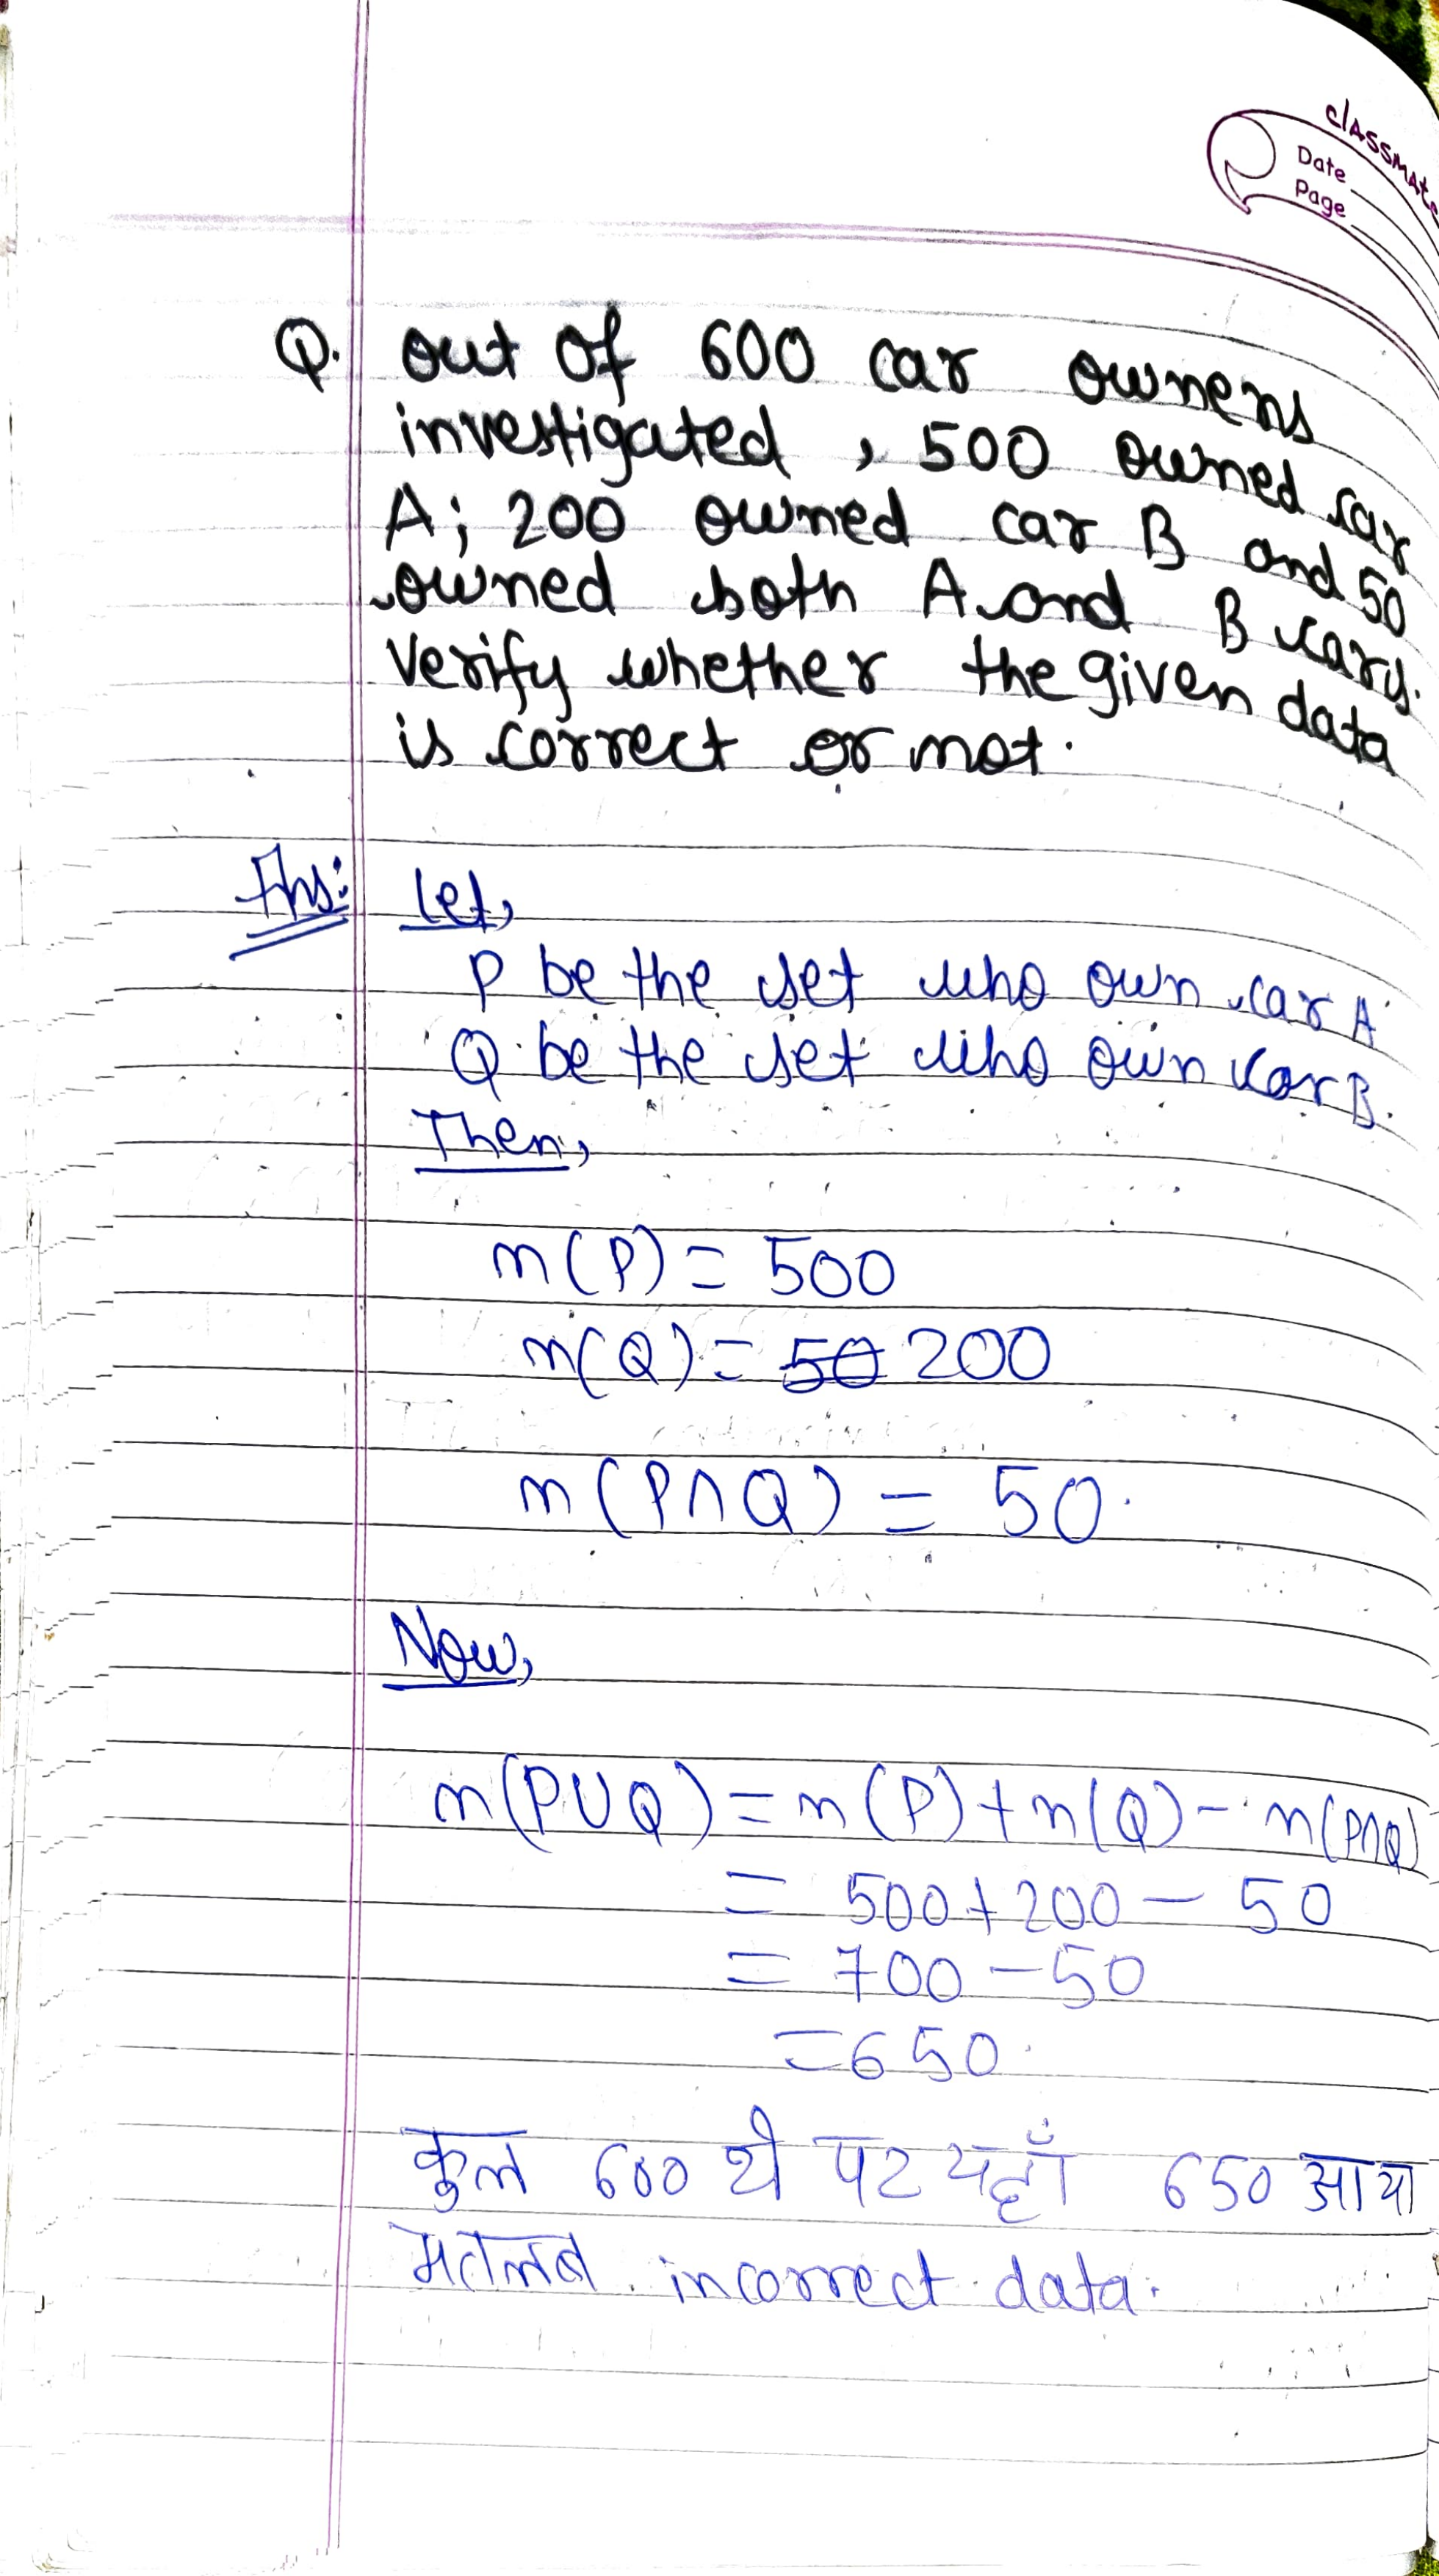 classmate
Date
Page
Q. out of 600 car owners
investigated, 500 owned car
A; 200 owned car B and 50
owned both A and B cars.
Verify whether the given data
is correct or not.
Ans: Let,
P be the set who own car A
Q be the set who own car B.
Then,
n(P) = 500
n(Q) = 50 200
n(P∩Q) = 50.
Now,
n(P∪Q) = n(P) + n(Q) - n(P∩Q)
= 500 + 200 - 50
= 700 - 50
= 650.
कुल 600 थे पर यहाँ 650 आया
मतलब incorrect data.